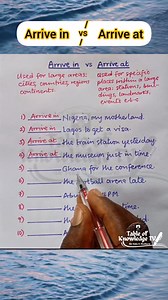 Arrive in vs Arrive at
Arrive in vs Arrive at
Used for large areas:
cities, countries, regions
continents.
Used for specific
places within a large
area: stations, buil-
dings, landmarks,
events e.t.c
1) Arrive in Nigeria, my motherland
2) Arrive in Lagos to get a visa
3) Arrive at the train station yesterday
4) Arrive at the museum just in time.
5) Ghana for the conference
6) the football arena late
7) PM
8) the time.
9) the
Table of
Knowledge TV